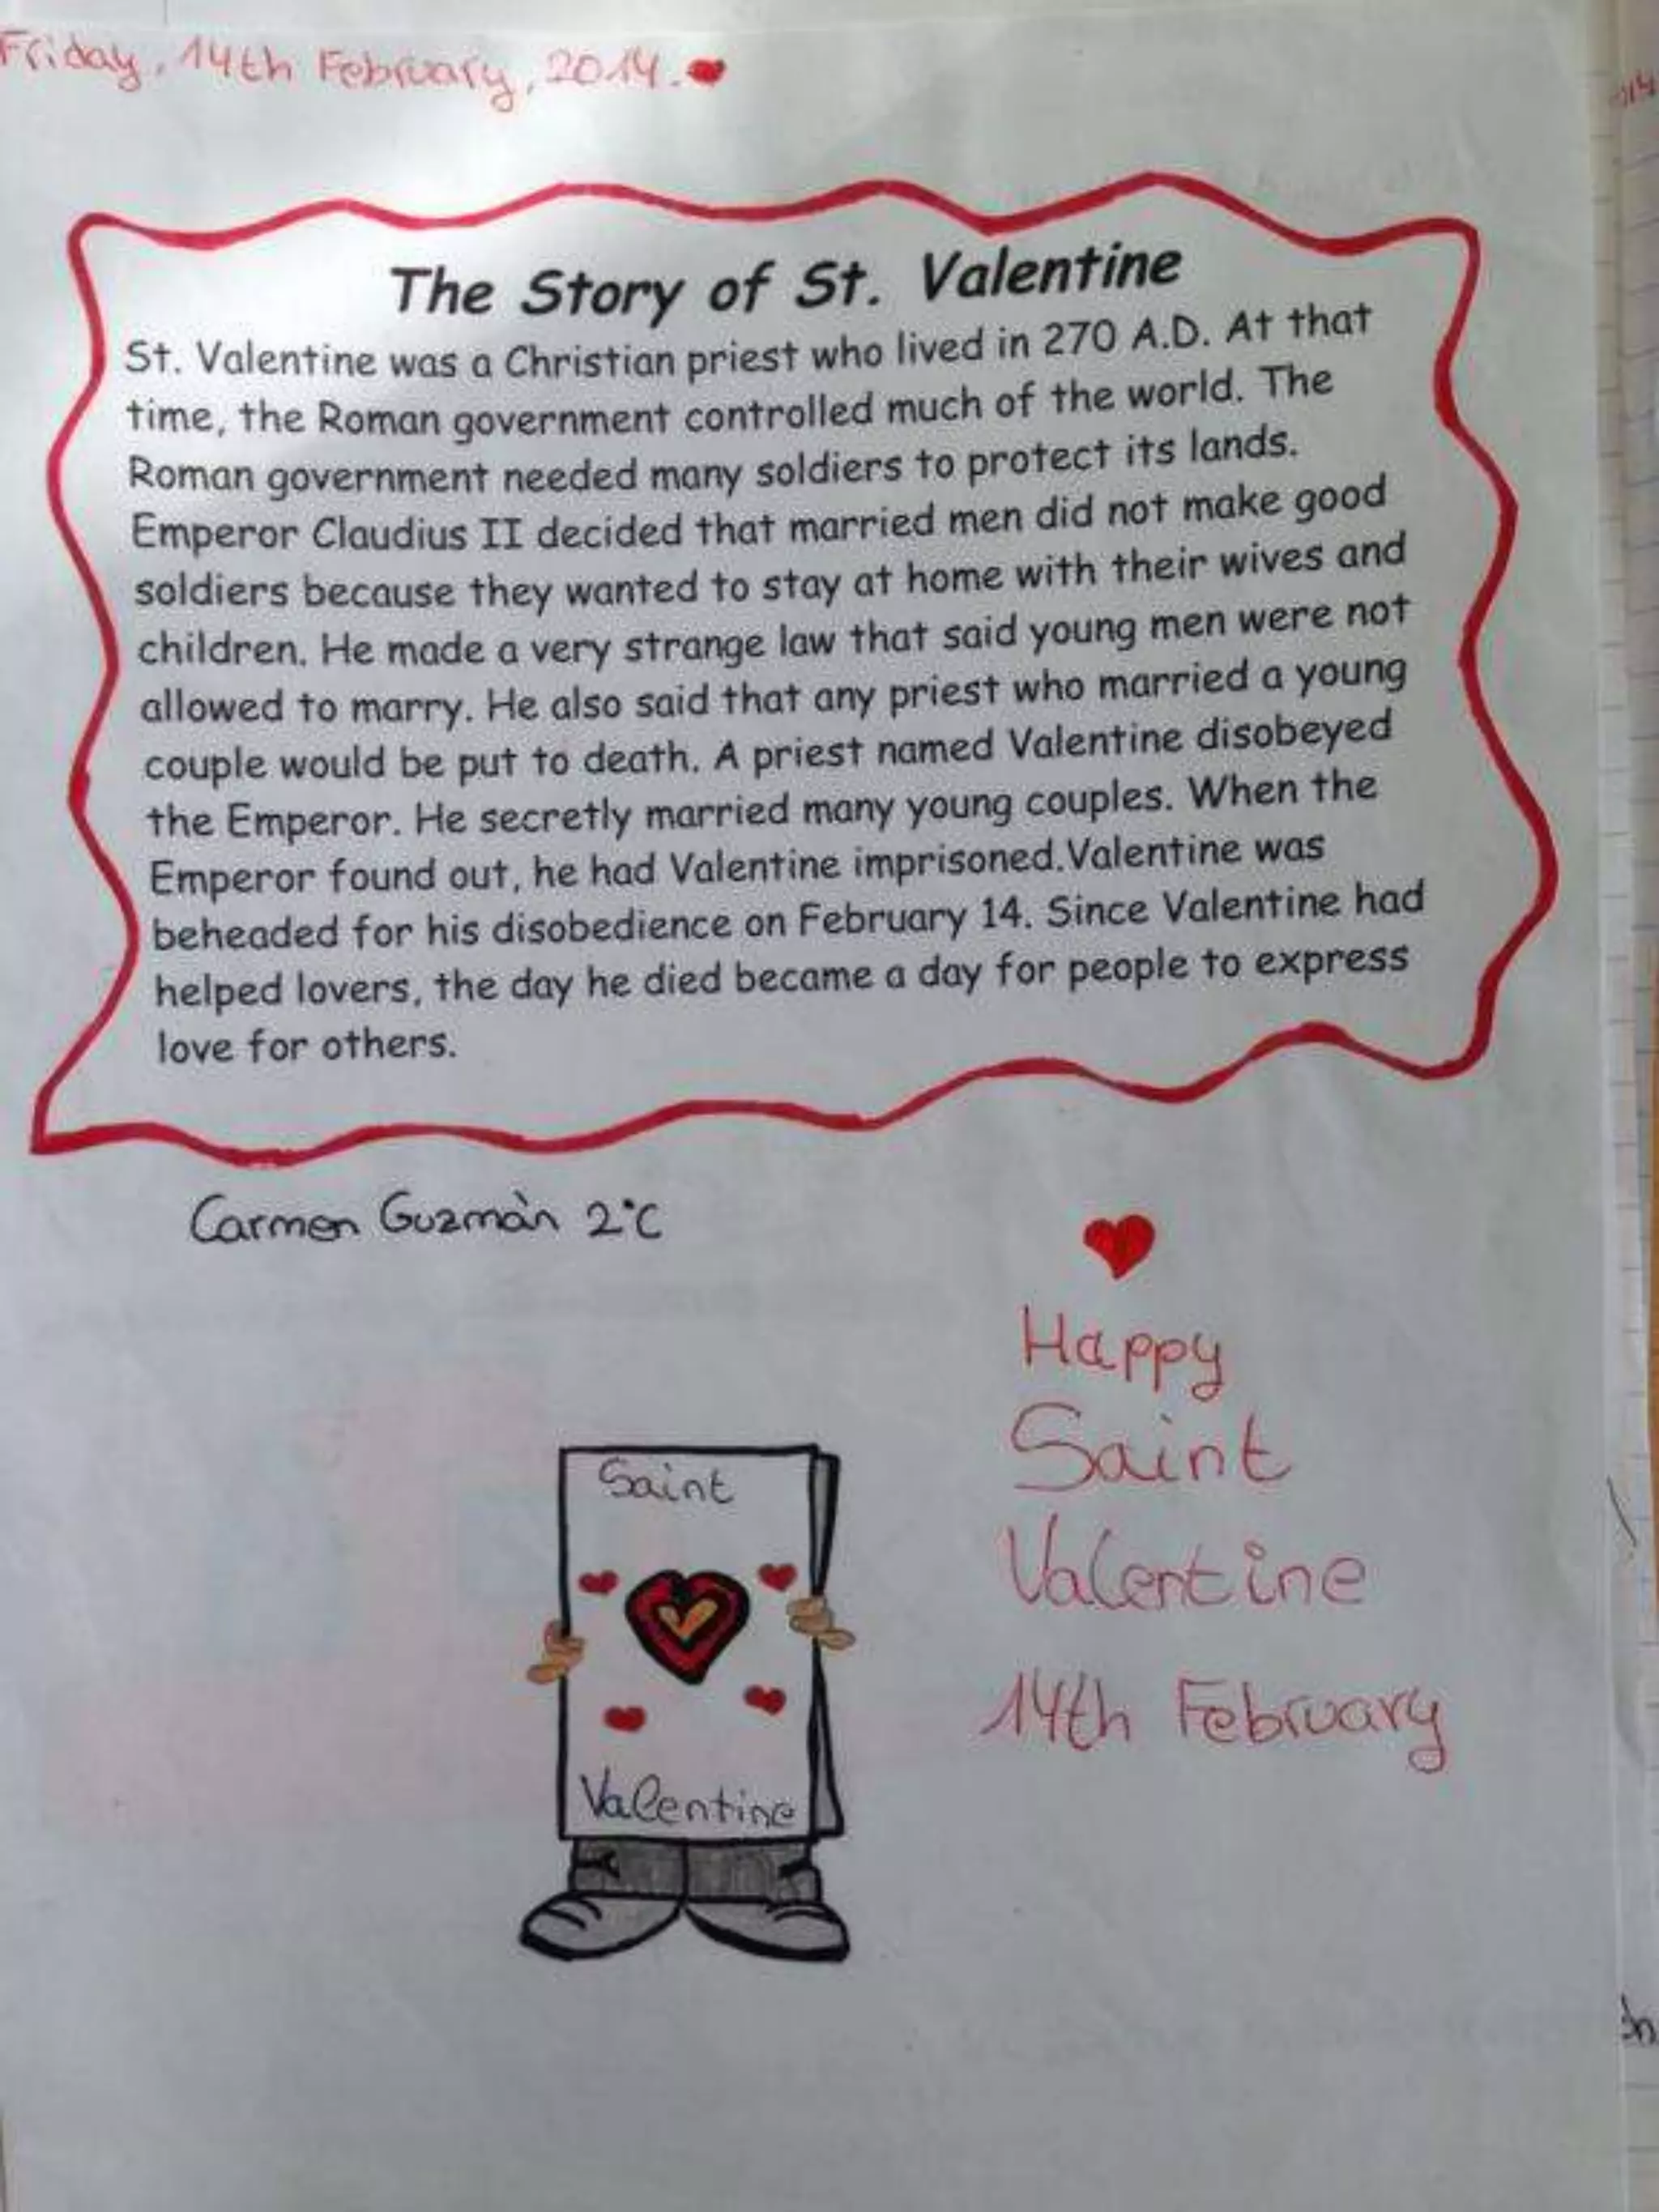 Friday, 14th February, 2014.
The Story of St. Valentine
St. Valentine was a Christian priest who lived in 270 A.D. At that
time, the Roman government controlled much of the world. The
Roman government needed many soldiers to protect its lands.
Emperor Claudius II decided that married men did not make good
soldiers because they wanted to stay at home with their wives and
children. He made a very strange law that said young men were not
allowed to marry. He also said that any priest who married a young
couple would be put to death. A priest named Valentine disobeyed
the Emperor. He secretly married many young couples. When the
Emperor found out, he had Valentine imprisoned.Valentine was
beheaded for his disobedience on February 14. Since Valentine had
helped lovers, the day he died became a day for people to express
love for others.
Carmen Guzmàn 2°C
Happy
Saint
Valentine
14th February
Saint
Valentine